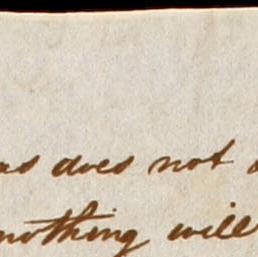 as does not
nothing will